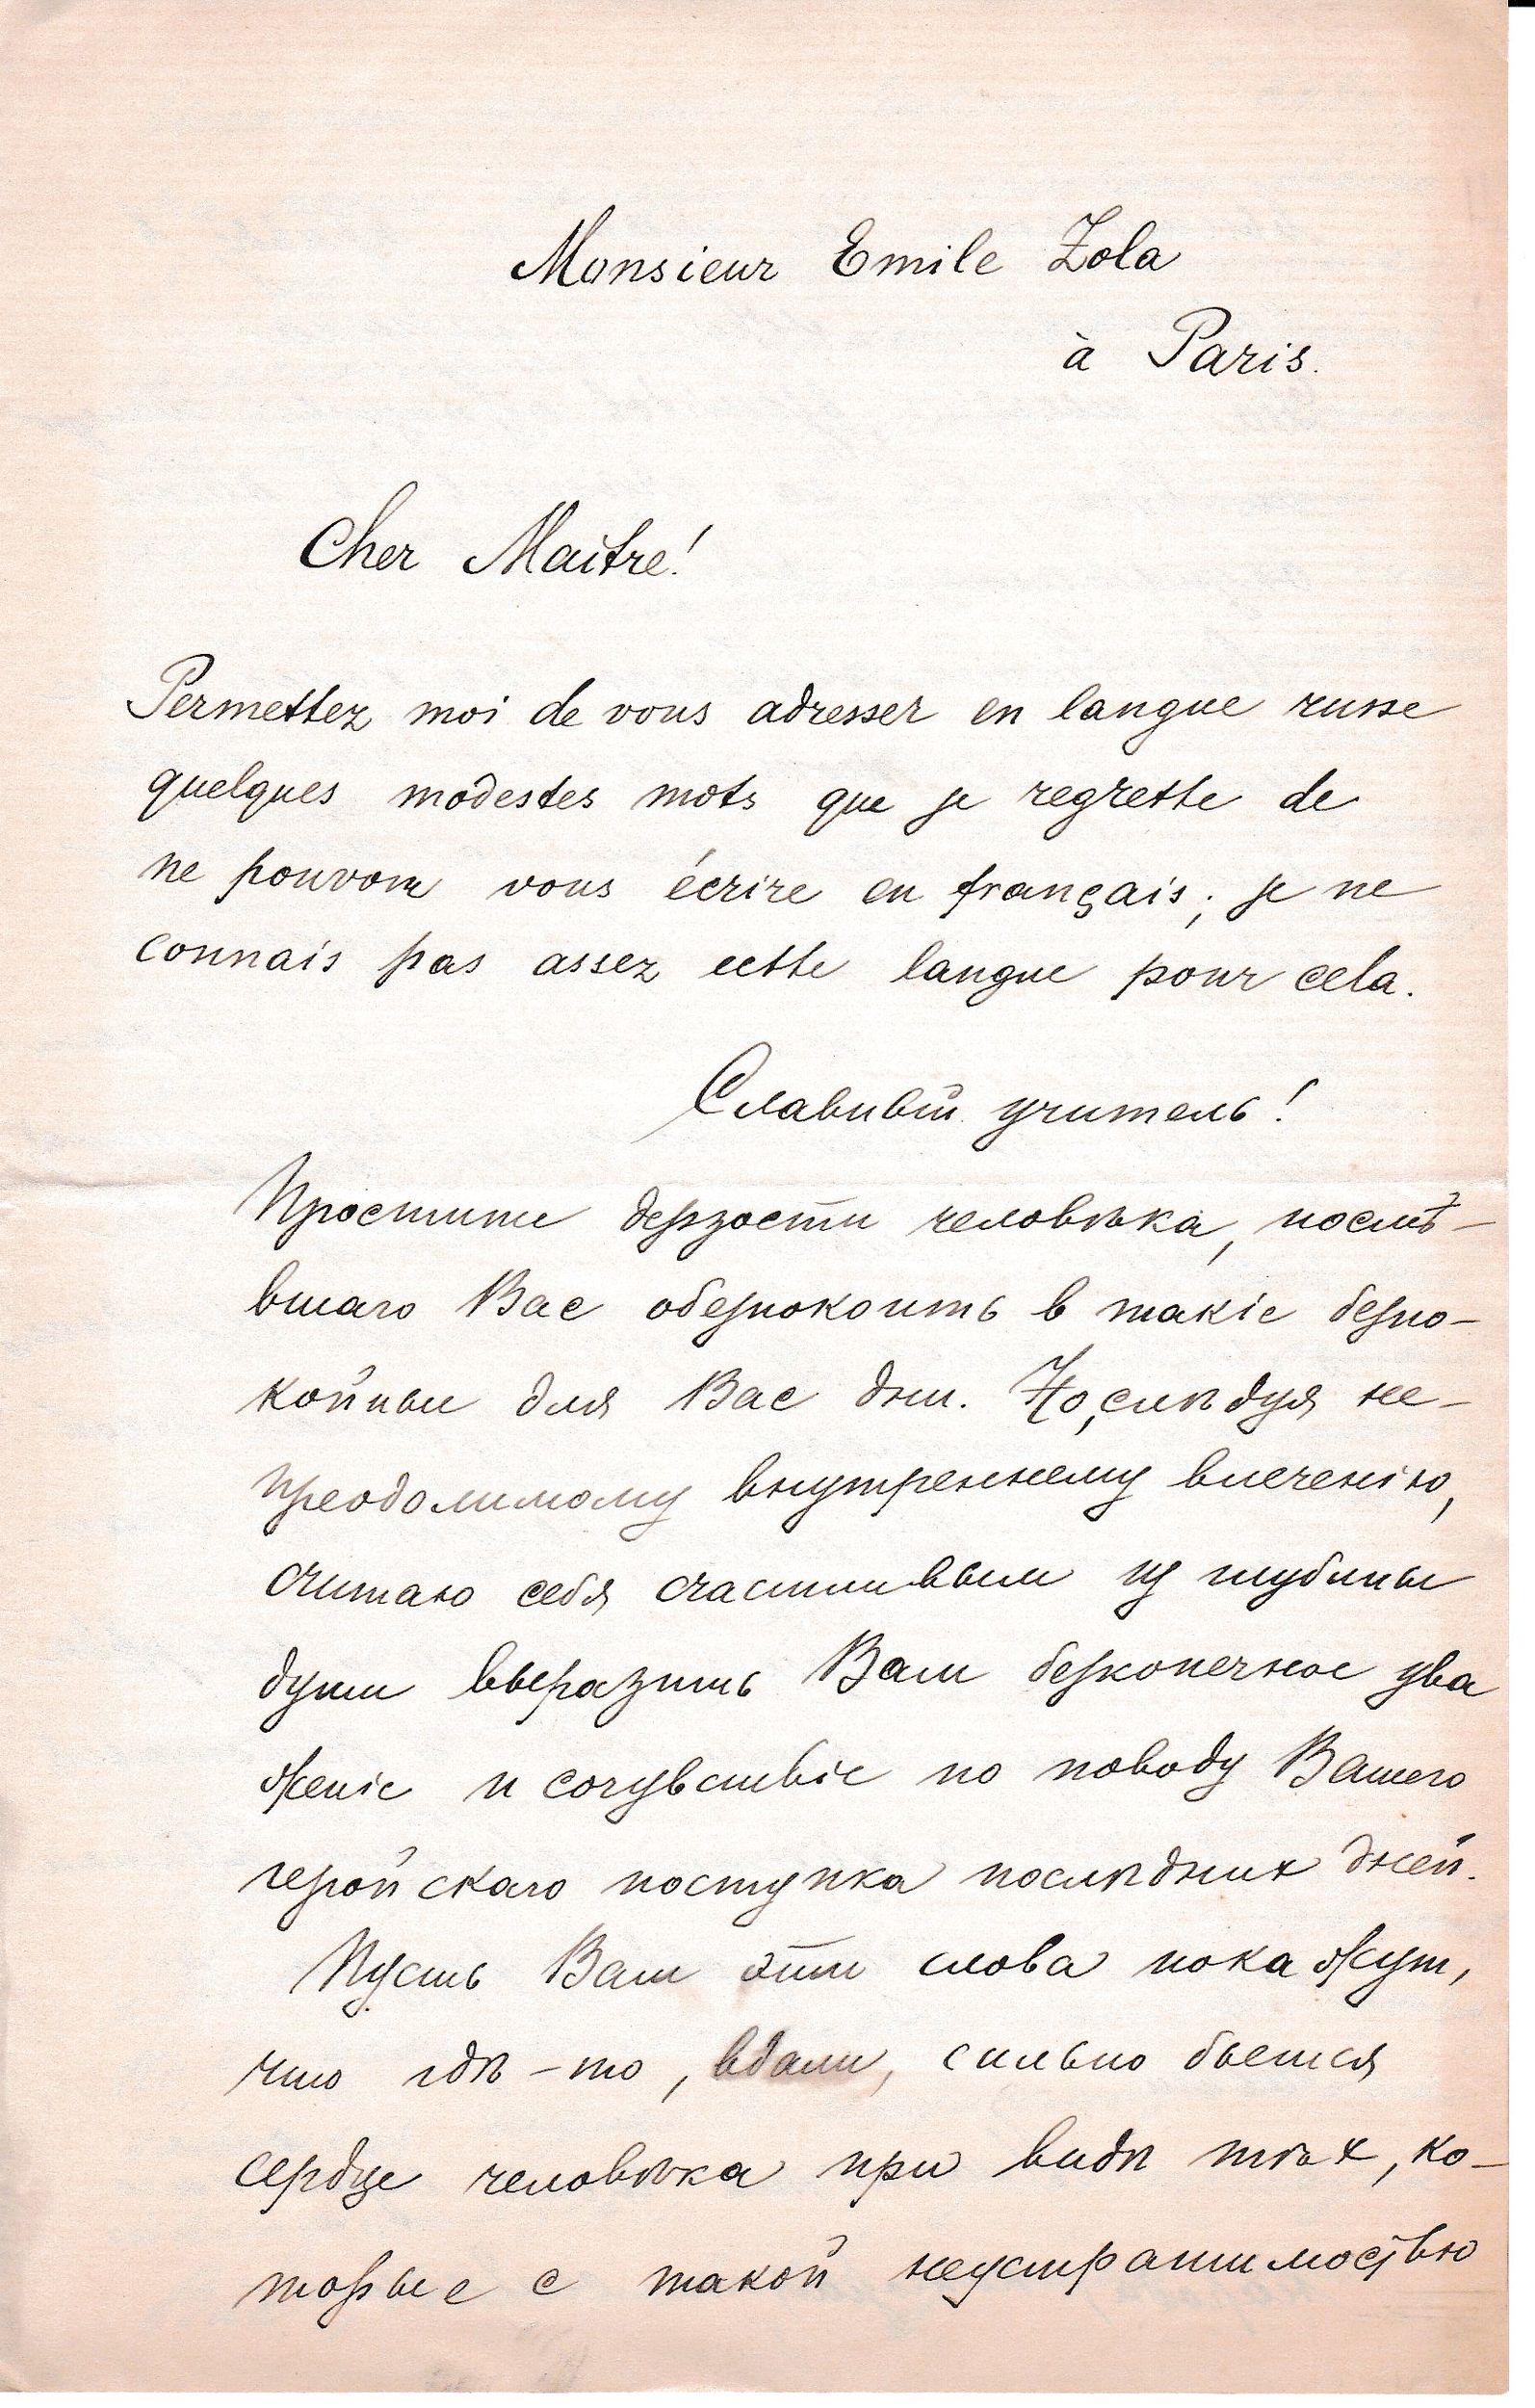 Monsieur Emile Zola
à Paris.
Cher Maître!
Permettez moi de vous adresser en langue russe
quelques modestes mots que je regrette de
ne pouvoir vous écrire en français; je ne
connais pas assez cette langue pour cela.
Славный учитель!
Простите дерзости человѣка, посмѣ-
вшаго Вас обезпокоить в такіе безпо-
койные для Вас дни. Но, слѣдуя не-
преодолимому внутреннему влеченію,
считаю себя счастливым из глубины
души выразить Вам безконечное ува
женіе и сочувствіе по поводу Вашего
геройскаго поступка послѣдних дней.
Пусть Вам эти слова покажут,
что гдѣ-то, вдали, сильно бьется
сердце человѣка при видѣ тѣх, ко-
торые с такой неустрашимостью